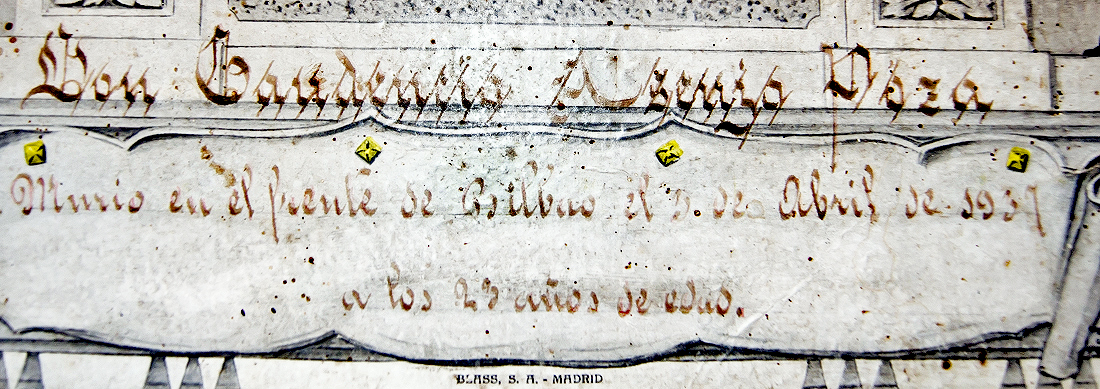 Don Gaudencio Asenjo Poza
Murio en el frente de Bilbao el 3. de Abril de 1937
a los 23 años de edad.
BLASS, S. A. - MADRID